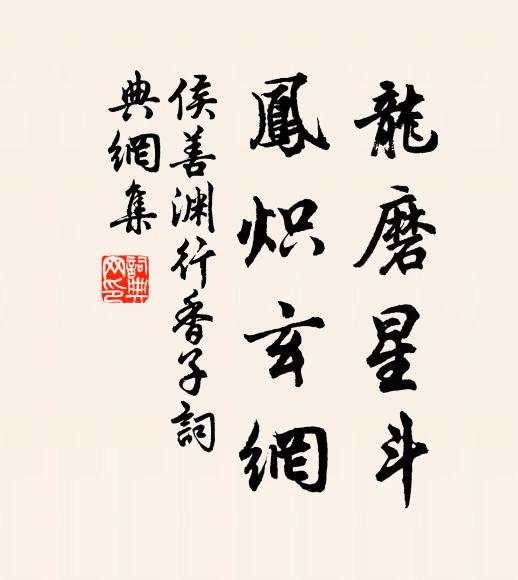 龍磨星斗
鳳炽玄網
侯善渊行香子詞
典網集
詞典網印